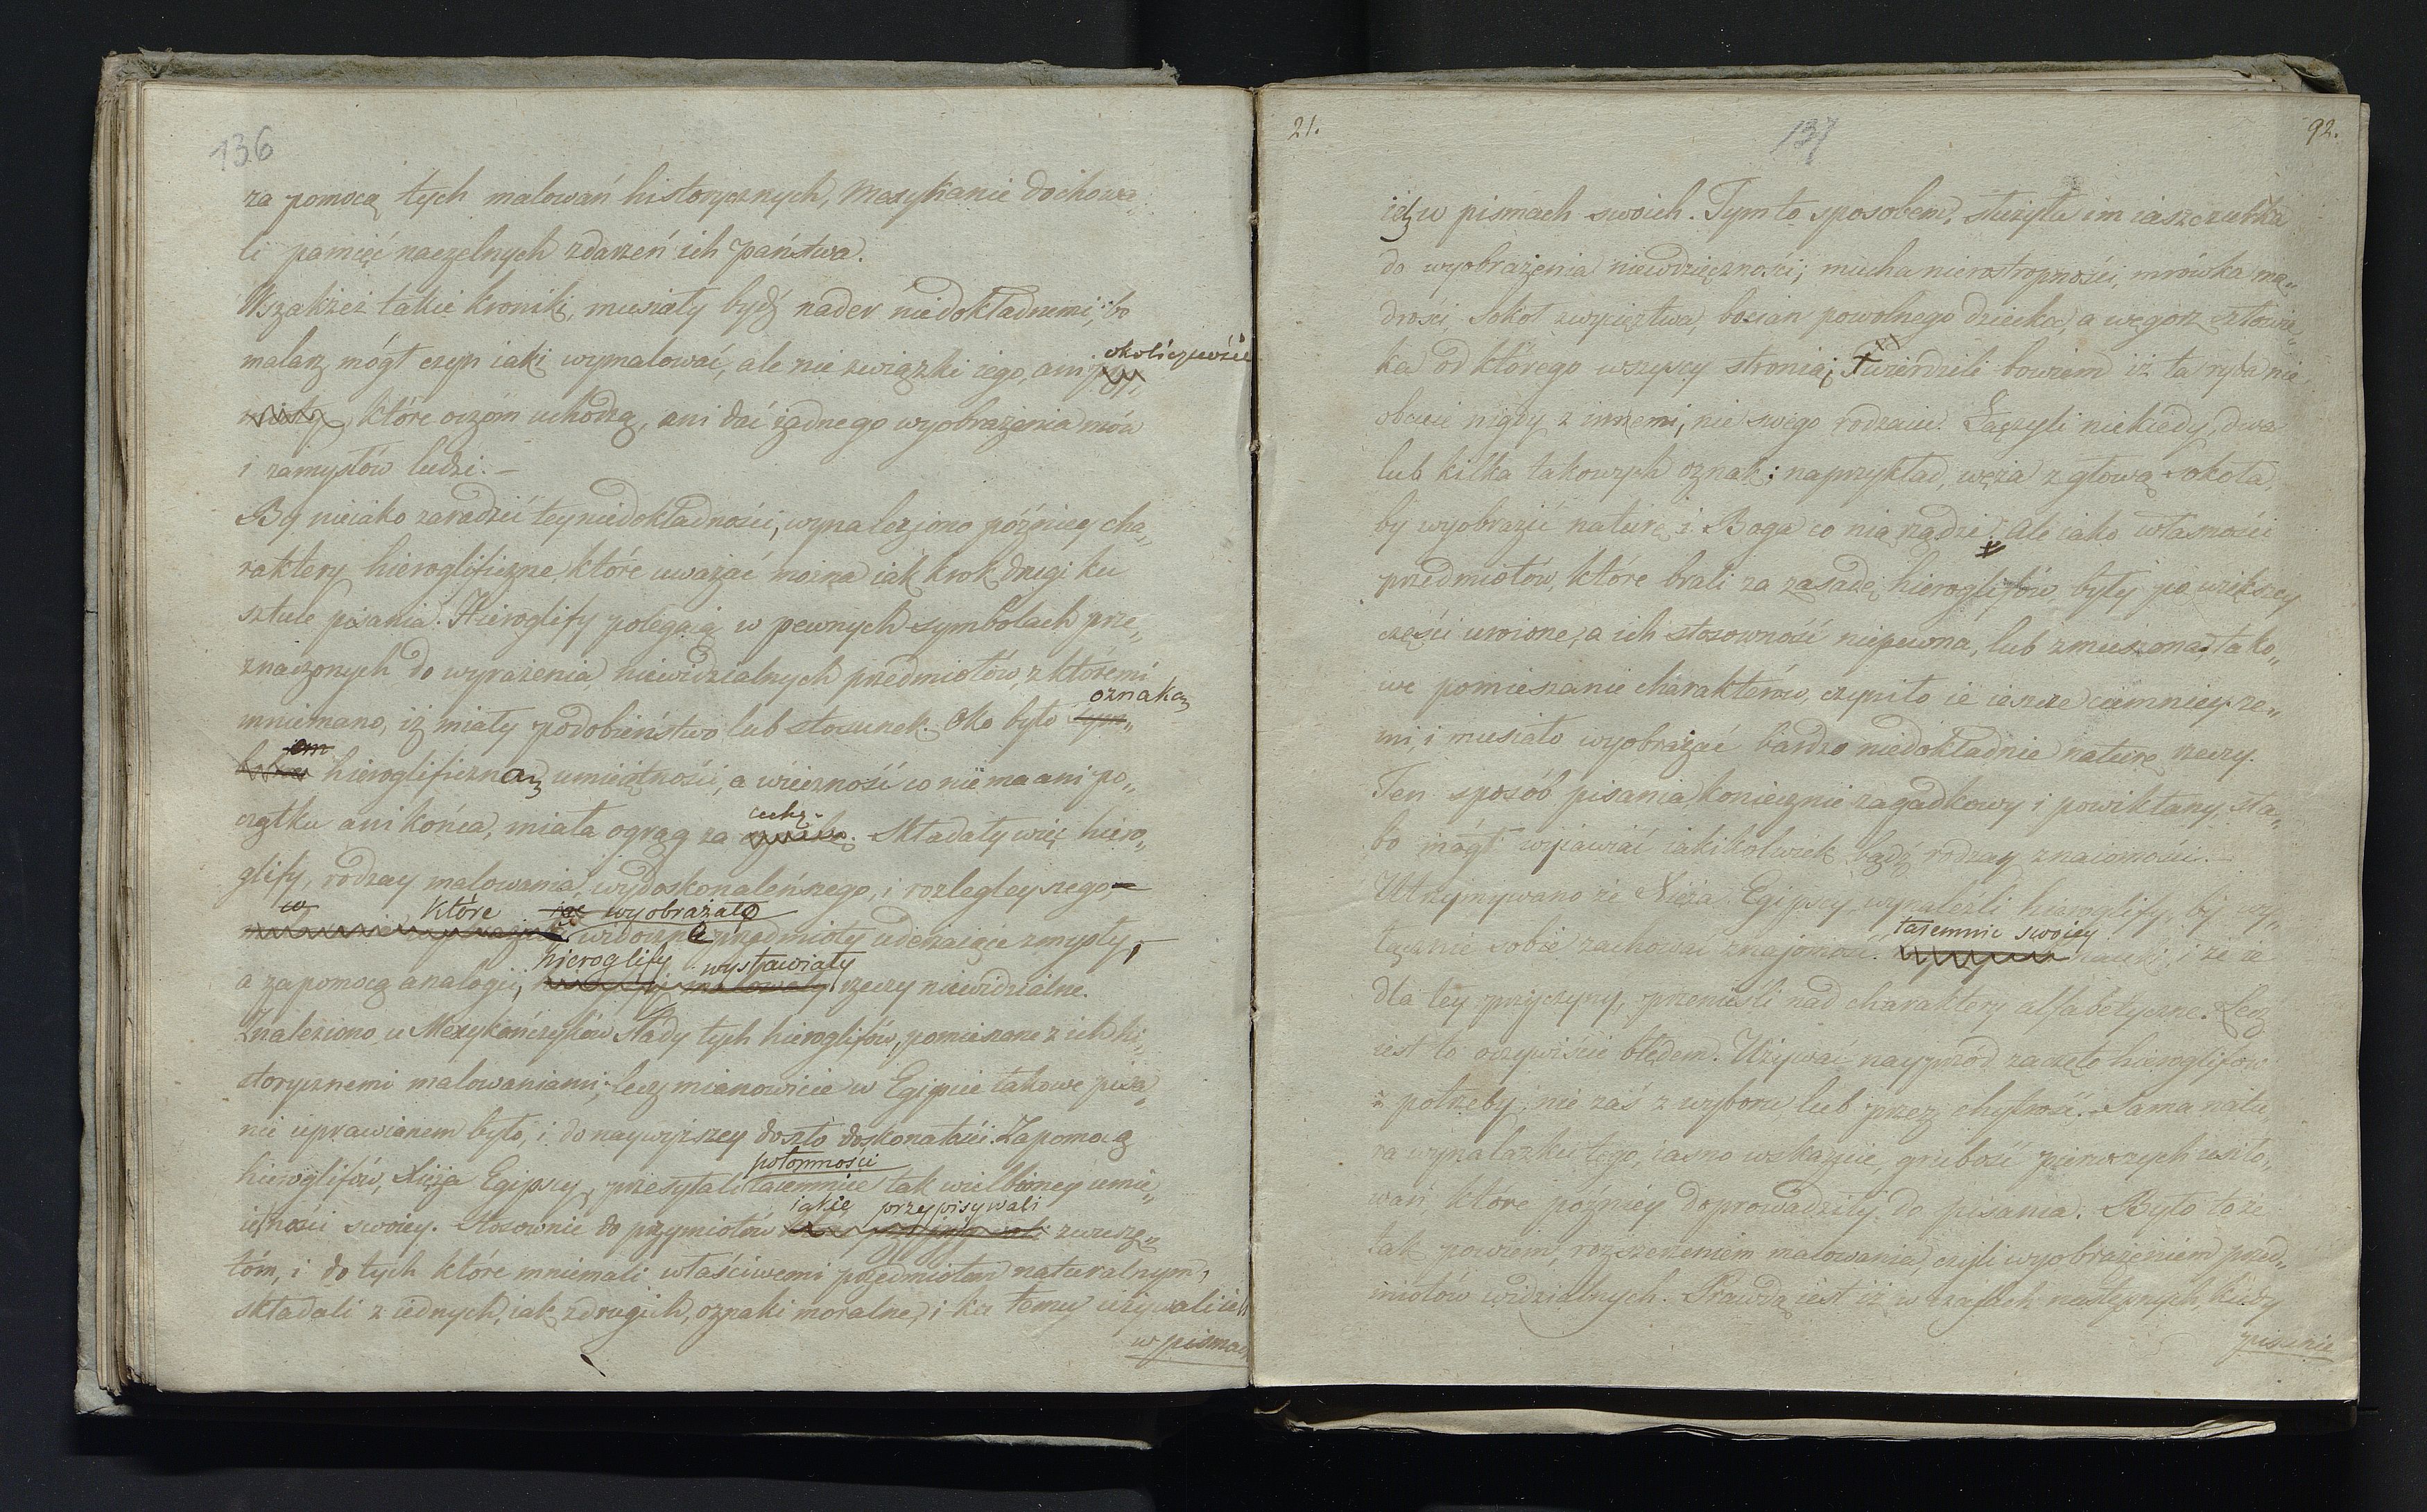 136
za pomocą tych malowań historycznych, Mexykanie dochowa„
li pamięć naczelnych zdarzeń ich państwa.
Wszakżeż takie kroniki, musiały bydź nader niedokładnemi; bo
malarz mógł czyn iaki wymalować, ale nie związki iego, ani
okoliczności
które oczóm uchodzą, ani dać żadnego wyobrażenia mów
i zamysłów ludzi. –
By nieiako zaradzić tey niedokładności, wynaleziono późniey cha„
raktery hieroglificzne, które uważać można iak krok drugi ku
sztuce pisania. Hieroglify polegaią w pewnych symbolach prze„
znaczonych do wyrażenia niewidzialnych przedmiotów, z któremi
mniemano, iż miały podobieństwo lub stosunek. Oko było sym„
oznaką
em
hieroglificzną umieiętności, a wieczność co nie ma ani po„
czątku ani końca, miała okrąg za
cechę.
Składały więc hiero„
glify, rodzay malowania, wydoskonaleńszego, i rozległeyszego
w które wyobrażało
widoczne przedmioty uderzaiące zmysły,
a za pomocą analogii, hieroglify wystawiały rzeczy niewidzialne.
Znaleziono u Mexykańczyków ślady tych hieroglifów, pomieszane z ich hi„
storycznemi malowaniami; lecz mianowicie w Egipcie takowe pisa„
nie uprawianem było, i do naywyższey doszło doskonałości. Za pomocą
hieroglifów, Xięża Egipscy, przesyłali potomności taiemnice tak wielbioney umie„
iętności swoiey. Stosownie do przymiotów iakie przypisywali zwierzę„
tóm, i do tych które mniemali właściwemi przedmiotom naturalnym,
składali z iednych, iak z drugich, oznaki moralne, i ku temu używali ich
w pismach
21.
137
92.
ich w pismach swoich. Tym to sposobem, służyła im iaszczurka
do wyobrażenia niewdzięczności; mucha nieroztropności, mrówka mą„
drości, sokoł zwycięztwa, bocian powolnego dziecka, a węgorz człowie„
ka od którego wszyscy stronią; Twierdzili bowiem iż ta ryba nie
obcuie nigdy z innemi, nie swego rodzaiu. Łączyli niekiedy, dwa
lub kilka takowych oznak; naprzykład, węża z głową sokoła,
by wyobrazić naturę i Boga co nią rządzi. Ale iako własności
przedmiotów, które brali za zasadę hieroglifów były po większey
części uroione, a ich stosowność niepewna, lub zmieszana, tako„
we pomieszanie charakterów, czyniło ie ieszcze ciemnieysze„
mi, i musiało wyobrażać bardzo niedokładnie naturę rzeczy.
Ten sposób pisania koniecznie zagadkowy i powikłany, sła„
bo mógł wyiawiać iakikolwiek bądź rodzay znaiomości. –
Utrzymywano że Xięża Egipscy wynaleźli hieroglify, by wy„
łącznie sobie zachować znajomość taiemnic swoiey nauki, i że ie
dla tey przyczyny, przenieśli nad charaktery alfabetyczne. Lecz
iest to oczywiście błędem. Używać nayprzód zaczęto hieroglifów
z potrzeby, nie zaś z wyboru lub przez chytrość. – Sama natu„
ra wynalazku tego, iasno wskazuie, grubość pierwszych usiło„
wań które poźniey doprowadziły do pisania. Było to że
tak powiem, rozszerzeniem malowania, czyli wyobrażeniem przed„
miotów widzialnych. Prawdą iest iż w czasach następnych, kiedy
pisanie